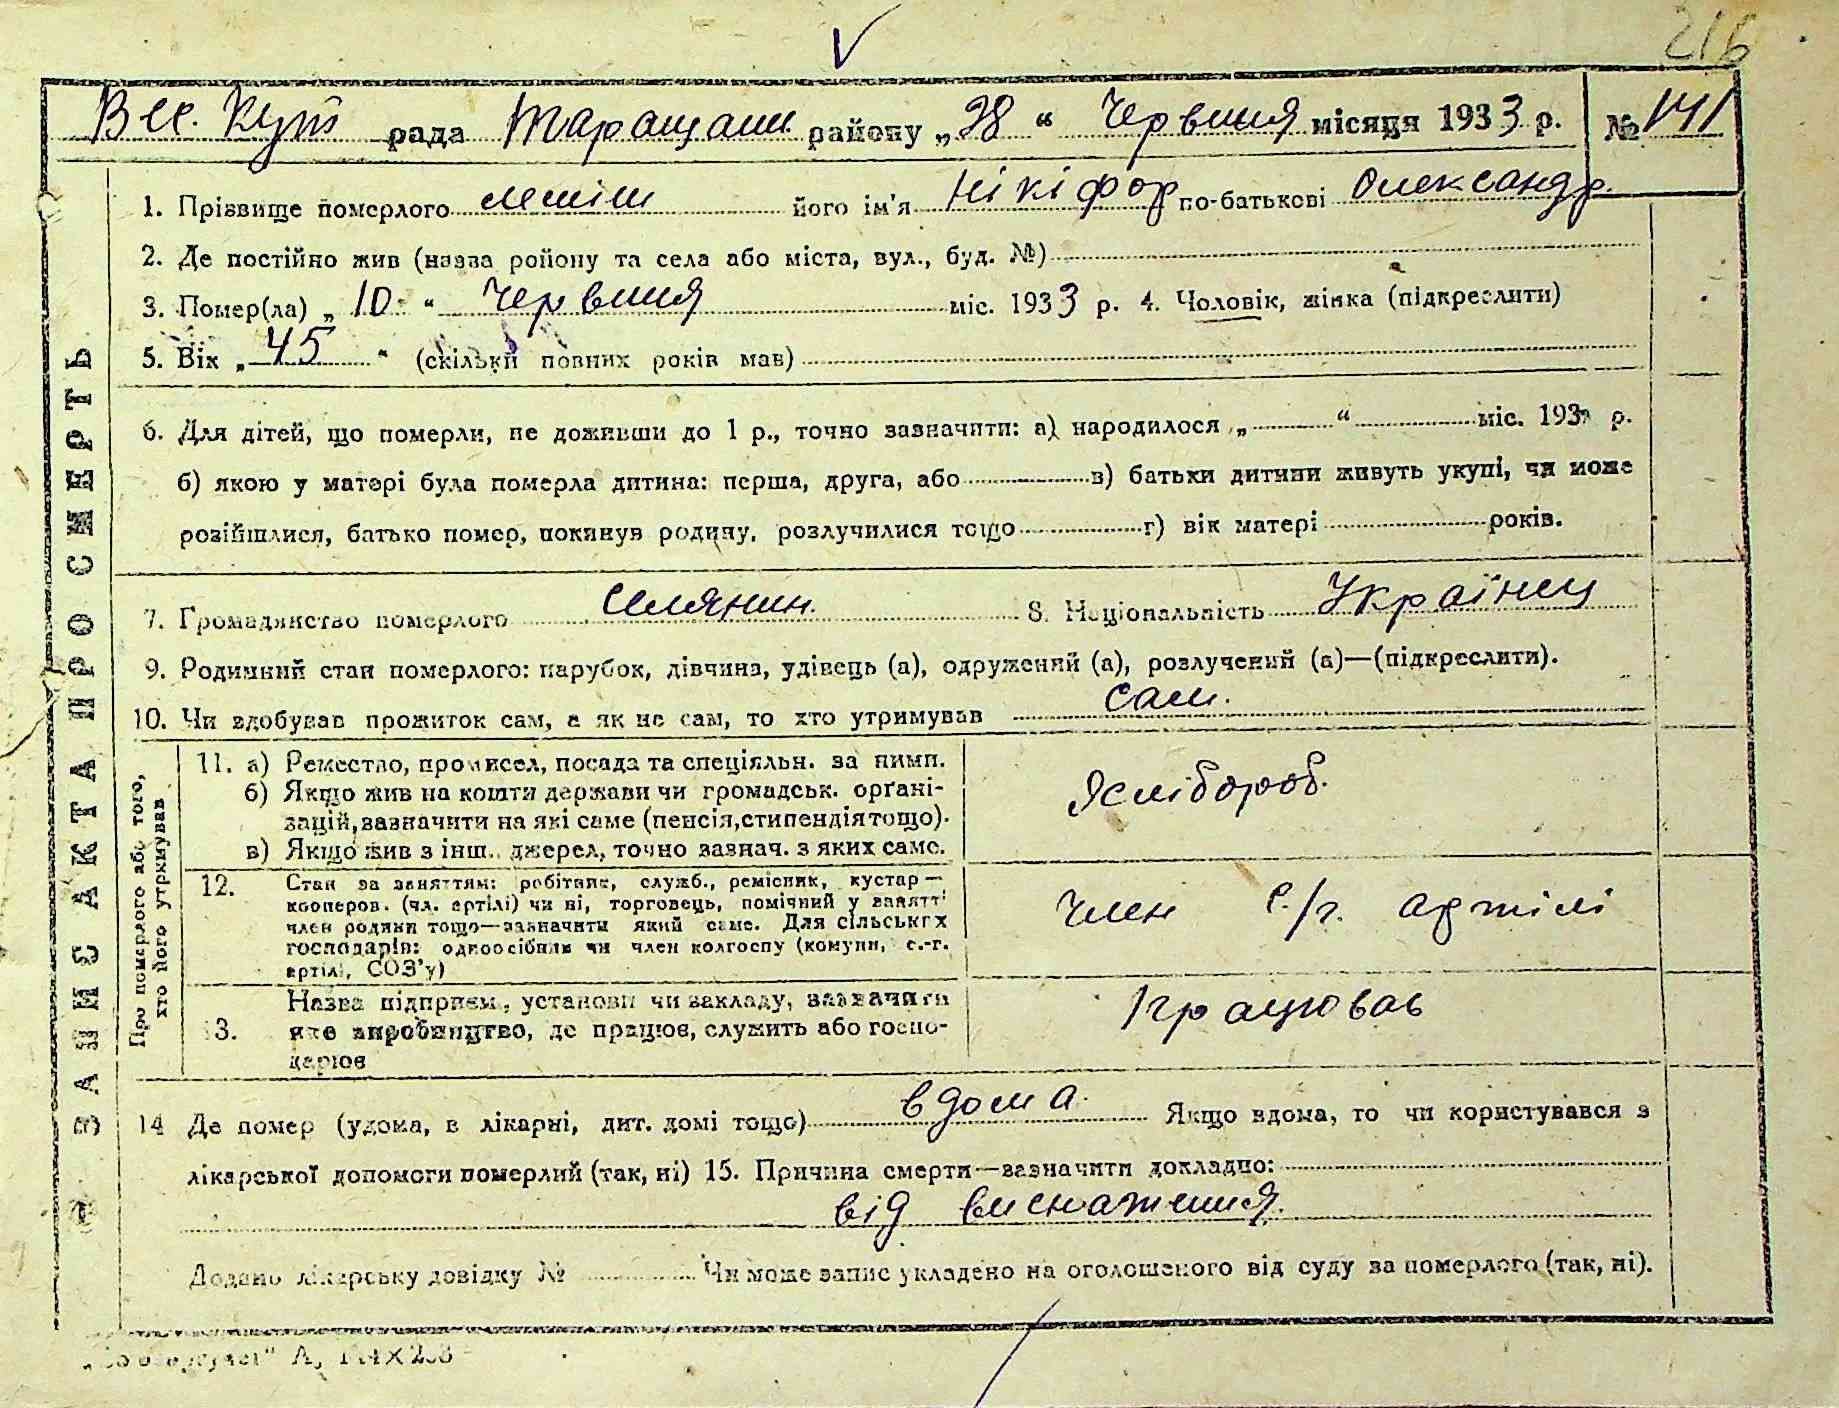 216
Вел. Кут рада Таращан. району „28“ Червня місяця 1933 р. № 141
1. Прізвище померлого його ім'я Нікіфор по-батькові Олександр.
2. Де постійно жив (назва ройону та села або міста, вул., буд. №)
3. Помер(ла) „10“ Червня міс. 1933 р. 4. Чоловік, жінка (підкреслити)
5. Вік „45“ (скільки повних років мав)
6. Для дітей, що померли, не доживши до 1 р., точно зазначити: а) народилося „ “ міс. 193 р.
б) якою у матері була померла дитина: перша, друга, або в) батьки дитини живуть укупі, чи може
розійшлися, батько помер, покинув родину, розлучилися тощо г) вік матері років.
7. Громадянство померлого Селянин. 8. Національність Українец
9. Родинний стан померлого: парубок, дівчина, удівець (а), одружений (а), розлучений (а)—(підкреслити).
10. Чи здобував прожиток сам, а як не сам, то хто утримував сам.
ЗАПИС АКТА ПРО СМЕРТЬ
Про померлого або того,
хто його утримував
11. а) Ремество, промисел, посада та спеціяльн. за ними.
б) Якщо жив на кошти держави чи громадськ. орґані-
зацій, зазначити на які саме (пенсія, стипендія тощо).
в) Якщо жив з інш. джерел, точно зазнач. з яких саме.
Хлібороб.
12. Стан за заняттям: робітник, служб., ремісник, кустар—
кооперов. (чл. артілі) чи ні, торговець, помічний у занятті
член родини тощо—зазначити який саме. Для сільських
господарів: одноосібник чи член колгоспу (комуни, с.-г.
артілі, СОЗ'у)
Член с./г. артілі
13. Назва підприєм., установи чи закладу, зазначити
яке виробництво, де працює, служить або госпо-
дарює
Працював
14 Де помер (удома, в лікарні, дит. домі тощо) вдома. Якщо вдома, то чи користувався з
лікарської допомоги померлий (так, ні) 15. Причина смерти—зазначити докладно:
від виснаження.
Додано лікарську довідку № Чи може запис укладено на оголошеного від суду за померлого (так, ні).